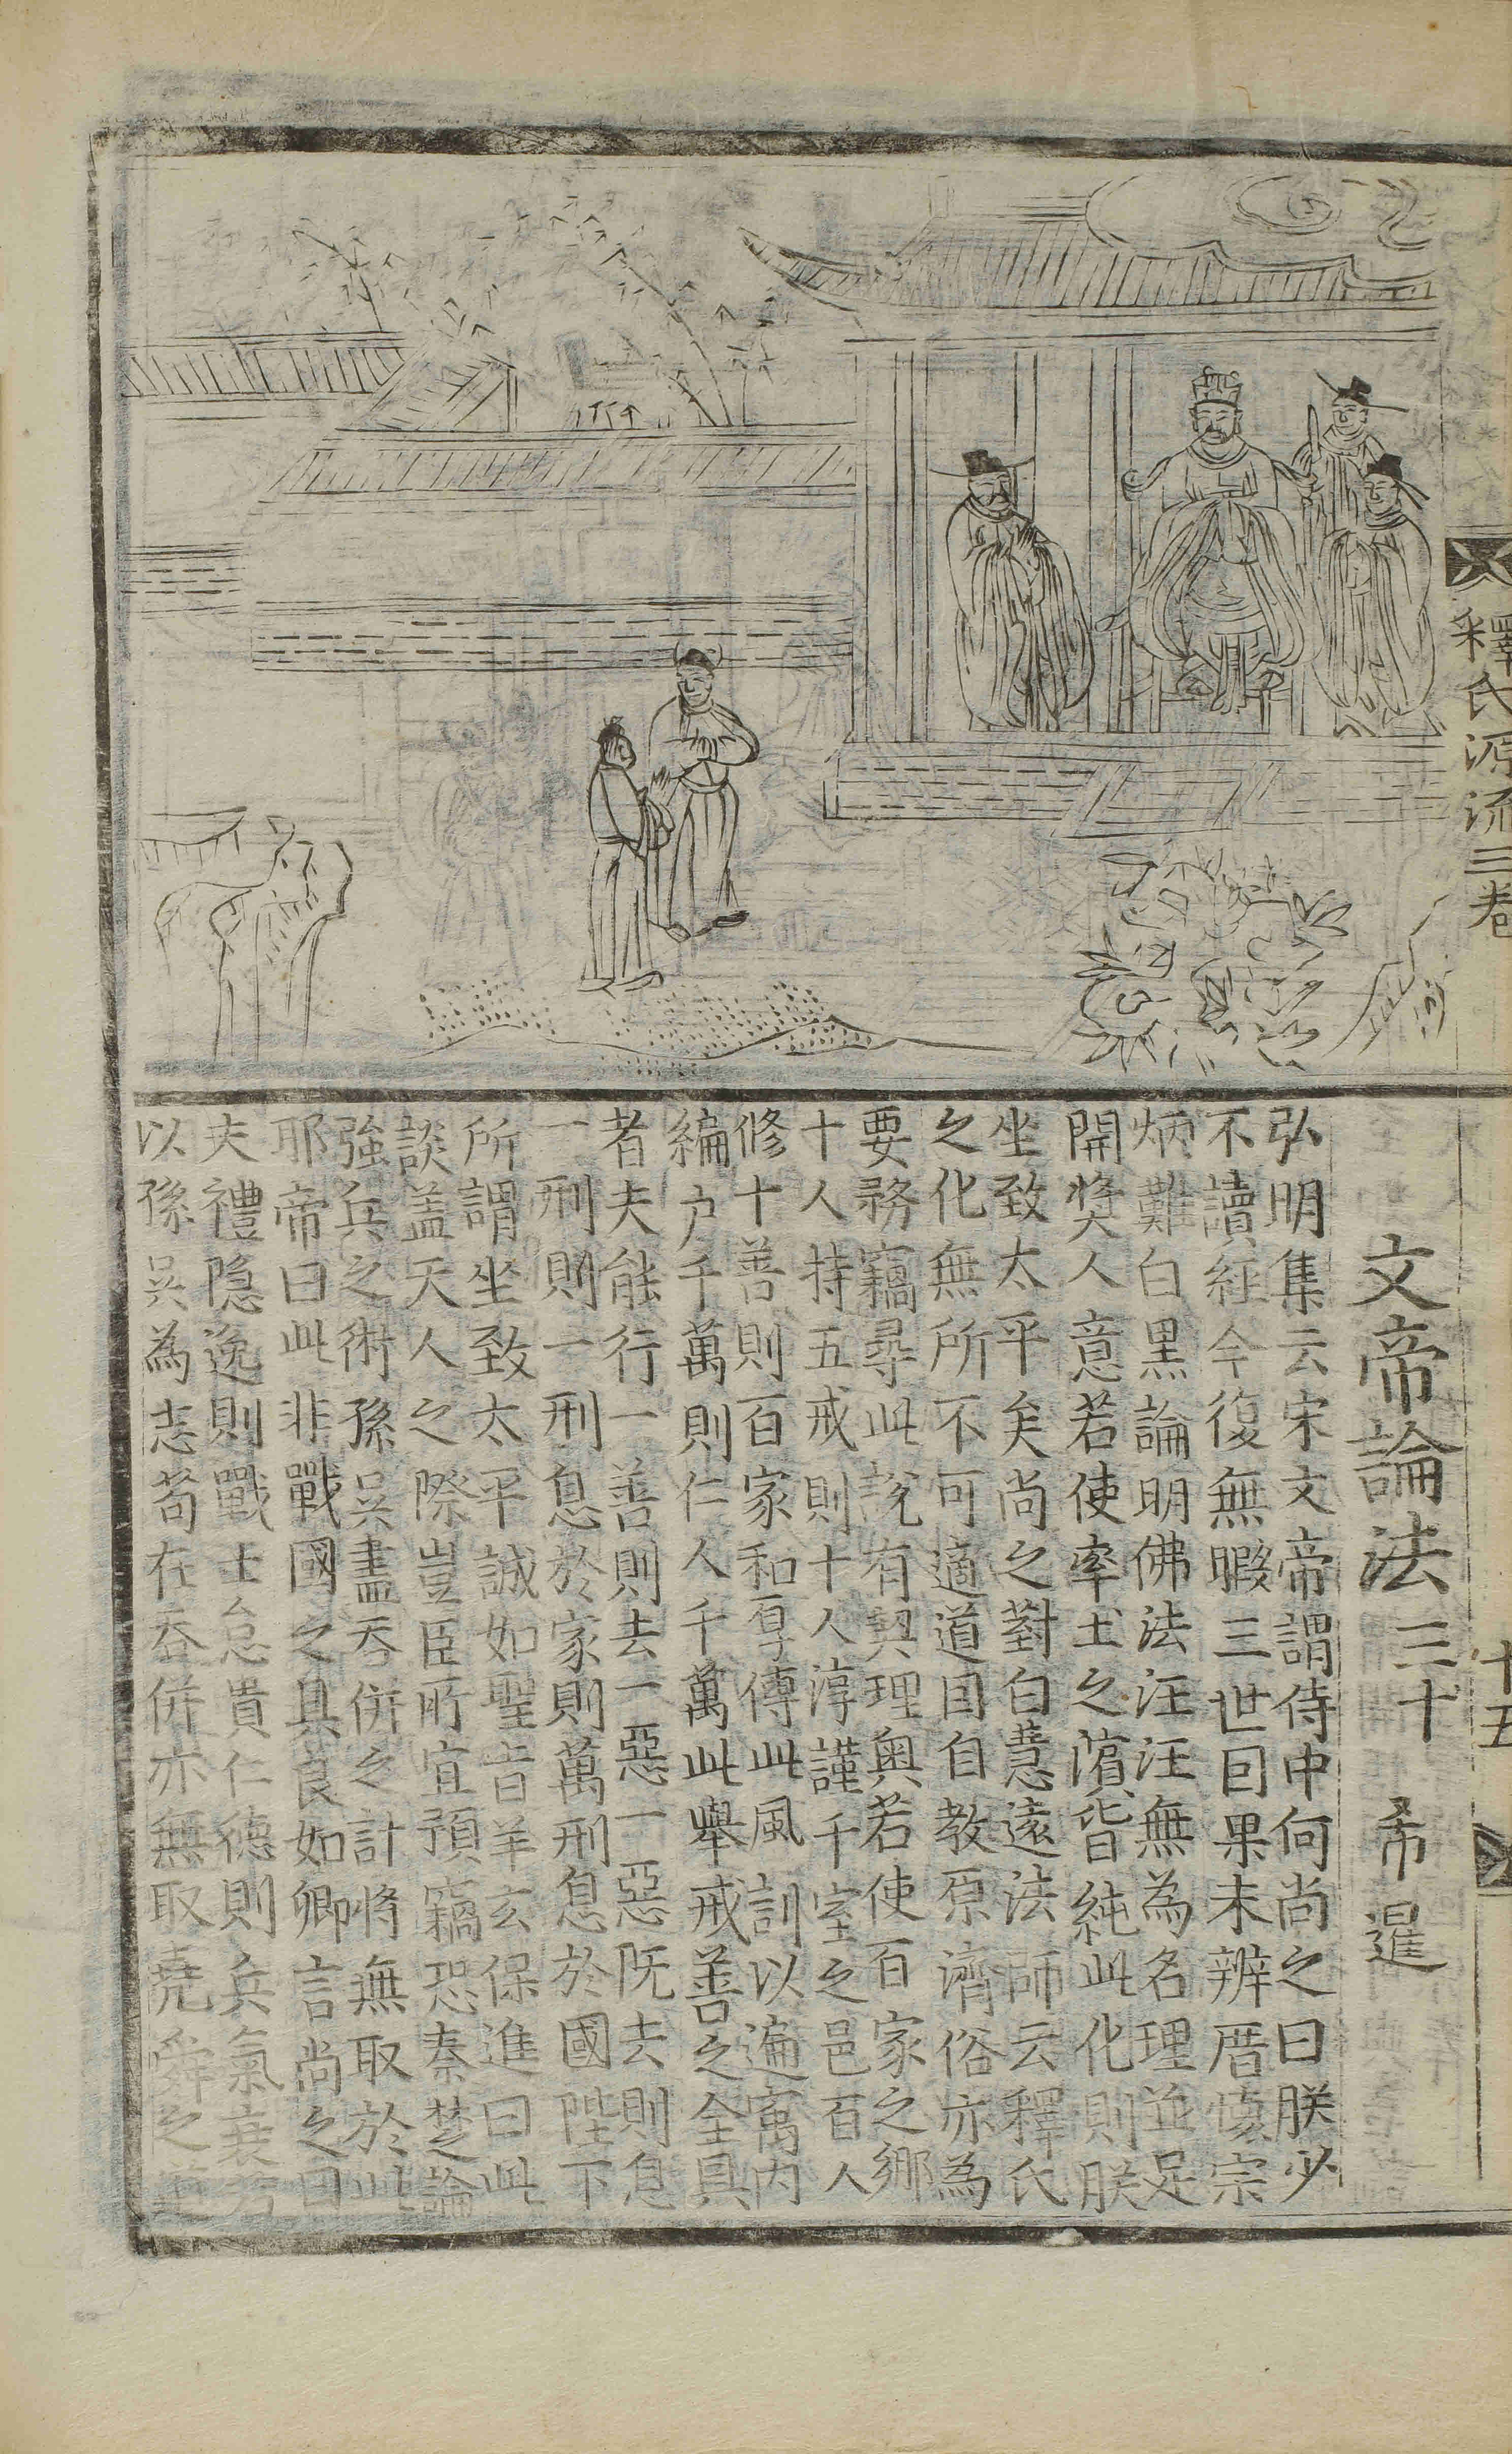 釋氏源流三卷
十五
文帝論法 三十 希暹
弘明集云宋文帝謂侍中何尚之曰朕少
不讀経今復無暇三世囙果未辨厝懐宗
炳難白黒論明佛法汪汪無為名理並足
開奬人意若使率土之濱皆純此化則朕
坐致太平矣尚之對白慧遠法師云釋氏
之化無所不可適道囙自教原濟俗亦為
要務竊尋此說有契理奥若使百家之鄉
十人持五戒則十人淳謹千室之邑百人
修十善則百家和厚傳此風訓以遍寓内
編户千萬則仁人千萬此舉戒善之全具
者夫能行一善則去一惡一惡既去則息
一刑則一刑息於家則萬刑息於國陛下
所謂坐致太平誠如聖旨羊玄保進曰此
談盖天人之際豈臣所宜預竊恐秦楚論
強兵之術孫吴盡吞併之計將無取於此
耶帝曰此非戰國之具良如卿言尚之曰
夫禮隐逸則戰士怠貴仁德則兵氣衰若
以孫吴為志苟在吞併亦無取堯舜之道